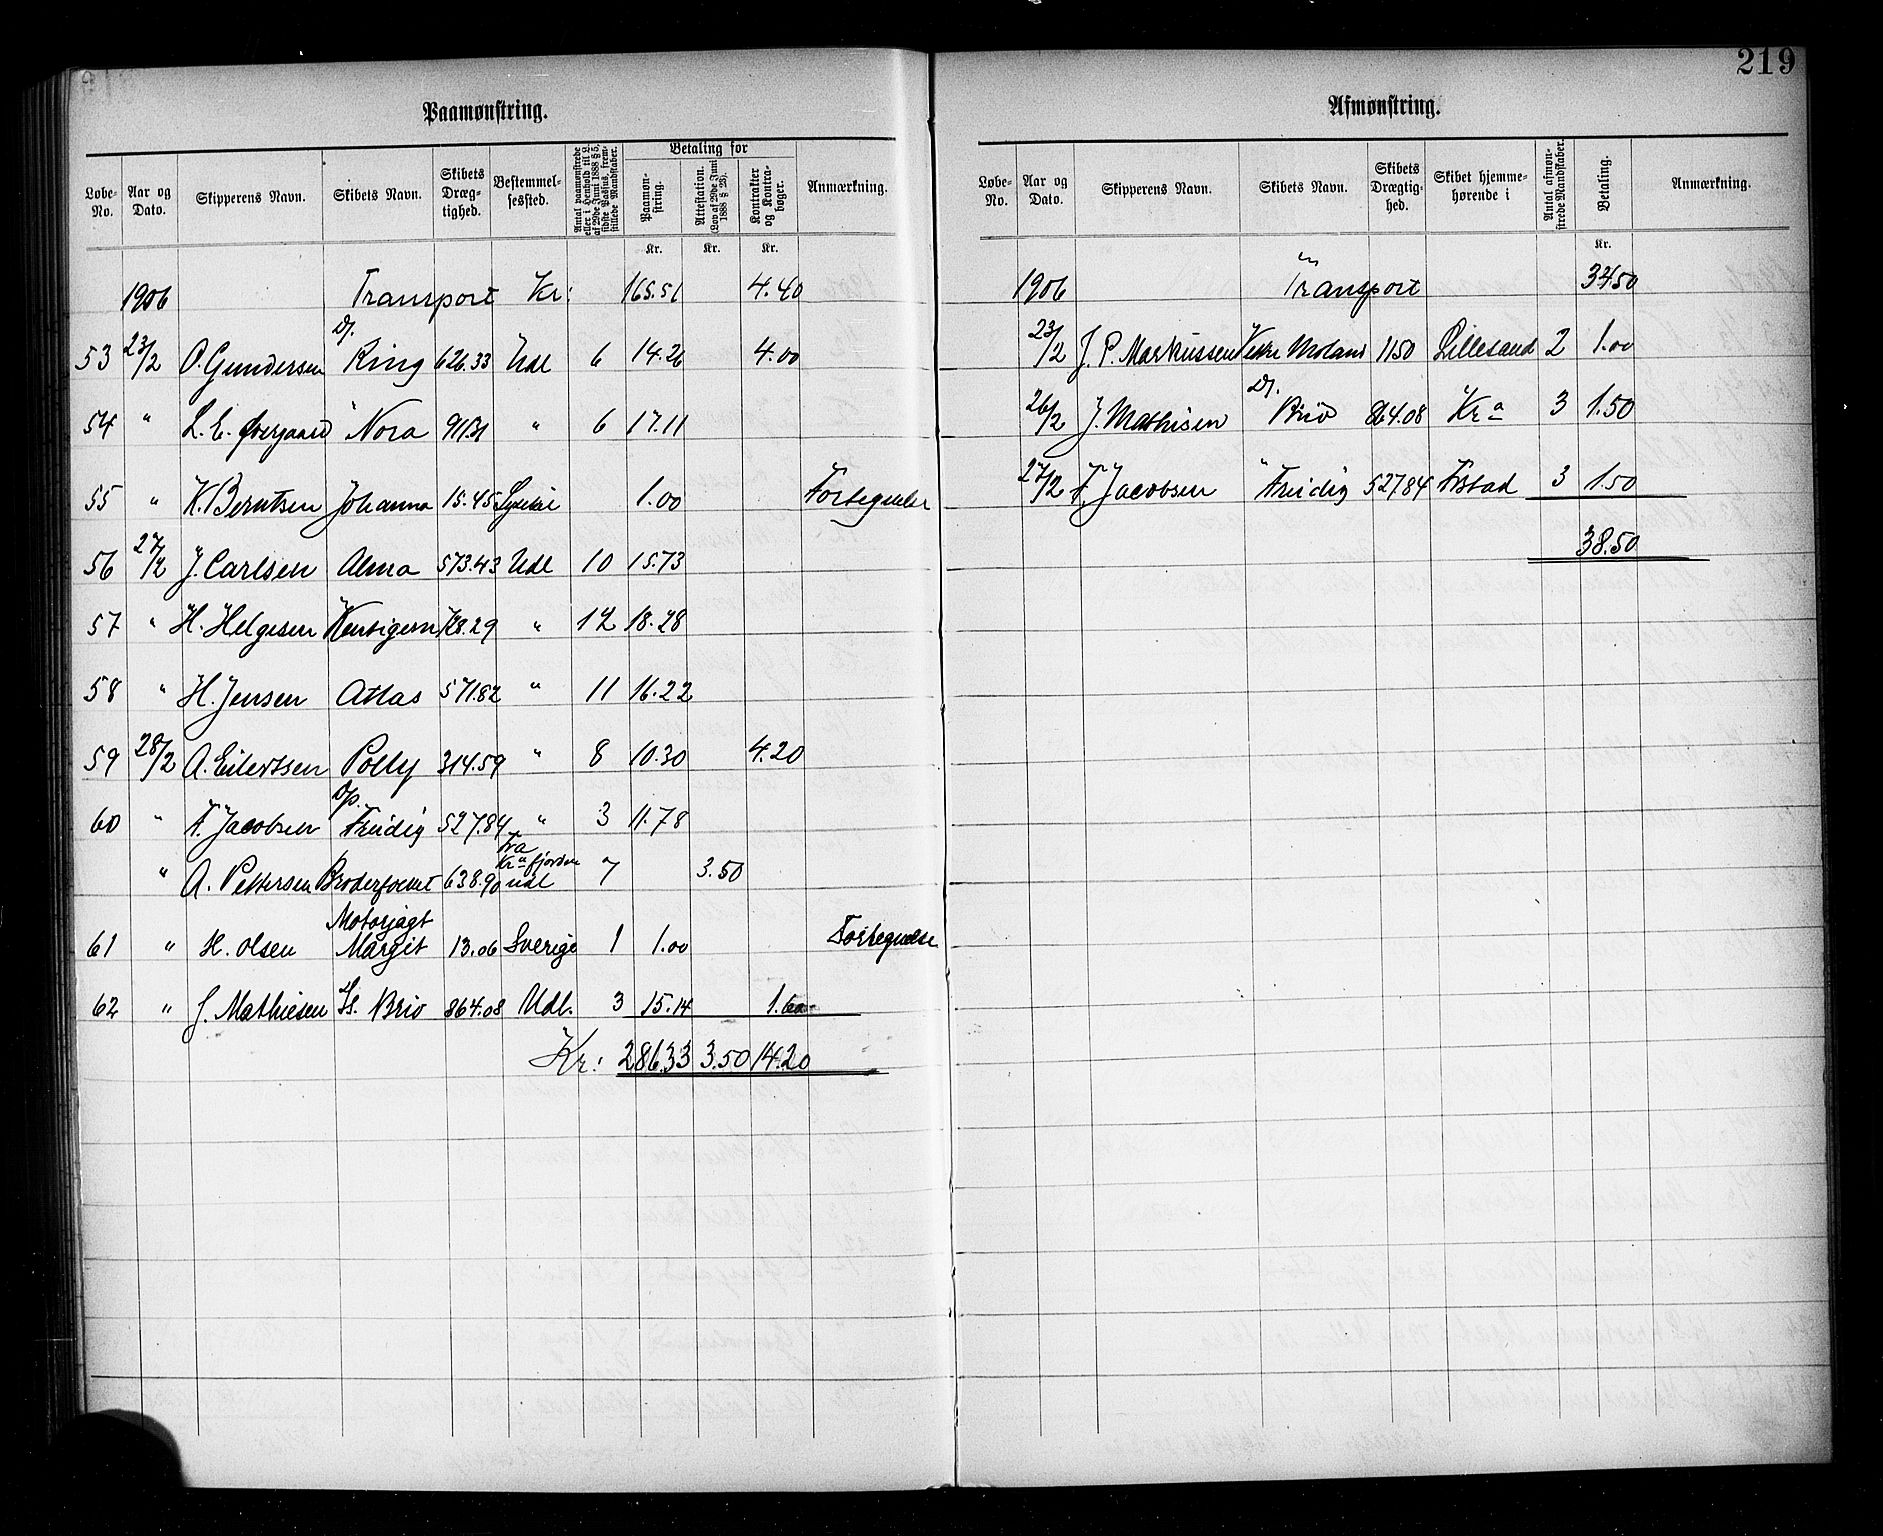 219
Paamønstring.
Løbe-No. Aar og Dato. Skipperens Navn. Skibets Navn. Skibets Dræg-tighed. Bestemmel-sessted. Antal paamønstrede eller i Henhold til L. af 29de Juni 1888 § 5, sidste Passus, frem-stillede Mandskaber. Betaling for Paamøn-string. Attestation. (Lov af 29de Juni 1888 § 23). Kontrakter og Kontra-bøger. Anmærkning.
Kr. Kr. Kr.
1906 Transport Kr: 165.51 4.40
53 23/2 O. Gundersen Ds. Ring 626.33 Udl 6 14.26 4.00
54 " L. E. Øvergaard " Nora 911.31 " 6 17.11
55 " K. Berntsen Johanna 15.45 1.00 Fortegnelse
56 27/2 J. Carlsen Alma 573.43 Udl 10 15.73
57 " H. Helgesen Kentigern 728.29 " 12 18.28
58 " H. Jensen Atlas 571.82 " 11 16.22
59 28/2 A. Eilertsen Polly 314.59 " 8 10.30 4.20
60 " F. Jacobsen Ds. Freidig 527.84 " 3 11.78
" A. Pettersen Broderfolket 638.90 Fra Kra fjorden udl 7 3.50
61 " H. Olsen Motorjagt Margit 13.06 Sverige 1 1.00 Fortegnelse
62 " J. Mathiesen Ds. Brio 864.08 Udl. 3 15.14 1.60
Kr: 286.33 3.50 14.20
Afmønstring.
Løbe-No. Aar og Dato. Skipperens Navn. Skibets Navn. Skibets Drægtig-hed. Skibet hjemme-hørende i Antal afmøn-strede Mandskaber. Betaling. Anmærkning.
Kr.
1906 Transport 34.50
23/2 J. P. Markussen Vestre Moland 1150 Lillesand 2 1.00
26/2 J. Mathisen Ds. Brio 864.08 Kra 3 1.50
27/2 F. Jacobsen " Freidig 527.84 Frstad 3 1.50
38.50